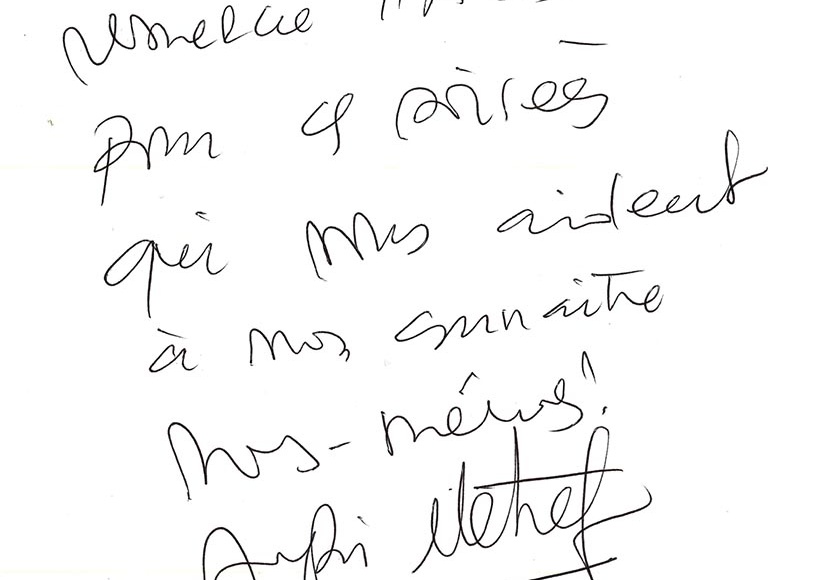 remercie
pour ces soirées
qui nous aident
à nous connaître
nous-mêmes !
Metref